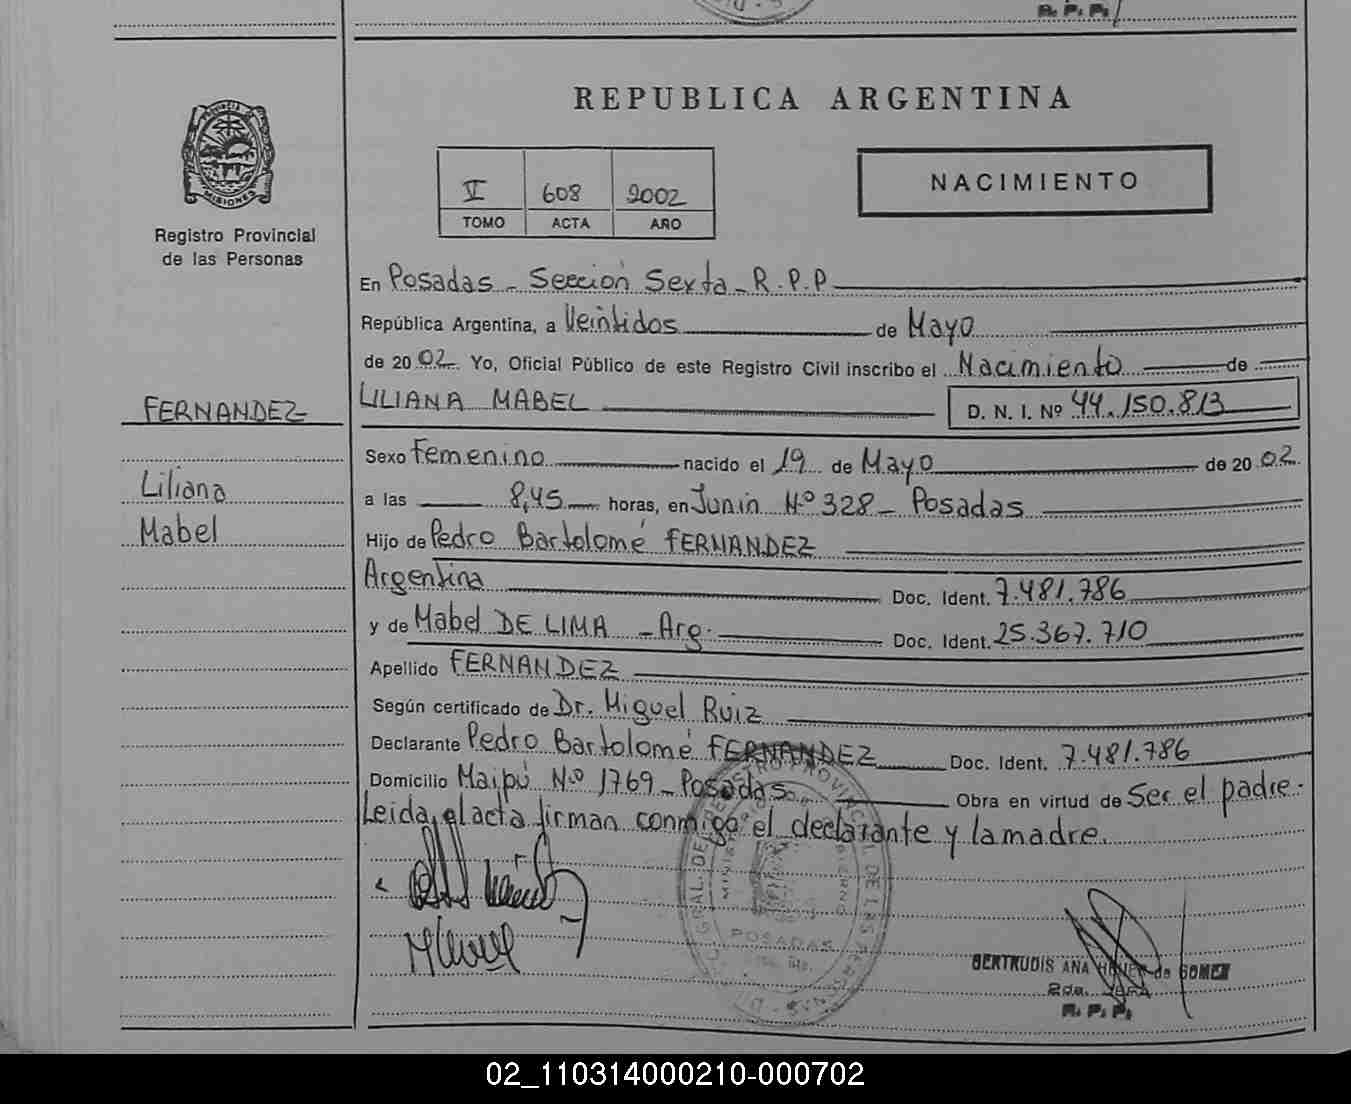 R. P. P.
REPUBLICA ARGENTINA
PROVINCIA
MISIONES
Registro Provincial
de las Personas
V 608 2002
TOMO ACTA AÑO
NACIMIENTO
En Posadas - Sección Sexta - R.P.P
República Argentina, a Veintidos de Mayo
de 2002 Yo, Oficial Público de este Registro Civil inscribo el Nacimiento de
FERNANDEZ
LILIANA MABEL D. N. I. Nº 44.150.813
Sexo Femenino nacido el 19 de Mayo de 2002
Liliana
a las 8,45 horas, en Junín Nº 328 - Posadas
Mabel
Hijo de Pedro Bartolomé FERNANDEZ
Argentina Doc. Ident. 7.481.786
y de Mabel DE LIMA - Arg. Doc. Ident. 25.367.710
Apellido FERNANDEZ
Según certificado de Dr. Miguel Ruiz
Declarante Pedro Bartolomé FERNANDEZ Doc. Ident. 7.481.786
Domicilio Maipú Nº 1769 - Posadas Obra en virtud de Ser el padre.
Leida el acta firman conmigo el declarante y la madre.
POSADAS
GERTRUDIS ANA de GOMEZ
2da. JEFA
R. P. P.
02_110314000210-000702